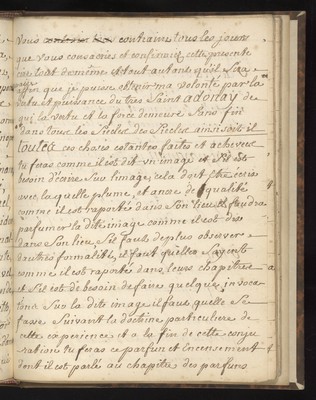 vous contraire tous les jours
que vous consacriés et confirmiés cette presente
tout de même et tout autant qu'il sera
affin que je puisse obtenir ma volonté par la
vertu et puissance du tres Saint adonay de
qui la vertu et la force demeure sans fin
dans tous les siecles des siecles ainsi soit il
ces choses estantes faite et achevés
tu feras comme il est dit un image et s'il est
besoin d'ecrire sur l'image cela doit être ecris
avec laquelle plume, et ancre de qualité
comme il est raportée dans son lieu il faudra
parfumer la dite image comme il est dit
dans son lieu, s'il faut deplus observer
dautres formalités, il faut quelles soyent
comme il est raporté dans leurs chapitres
et s'il est de besoin de faire quelque invoca
tions sur la dite image il faut quelle se
fasse suivant la doctrine particuliere de
cette experience et a la fin de cette conju
rations tu feras ce parfum et encensement
dont il est parlé au chapitre des parfums